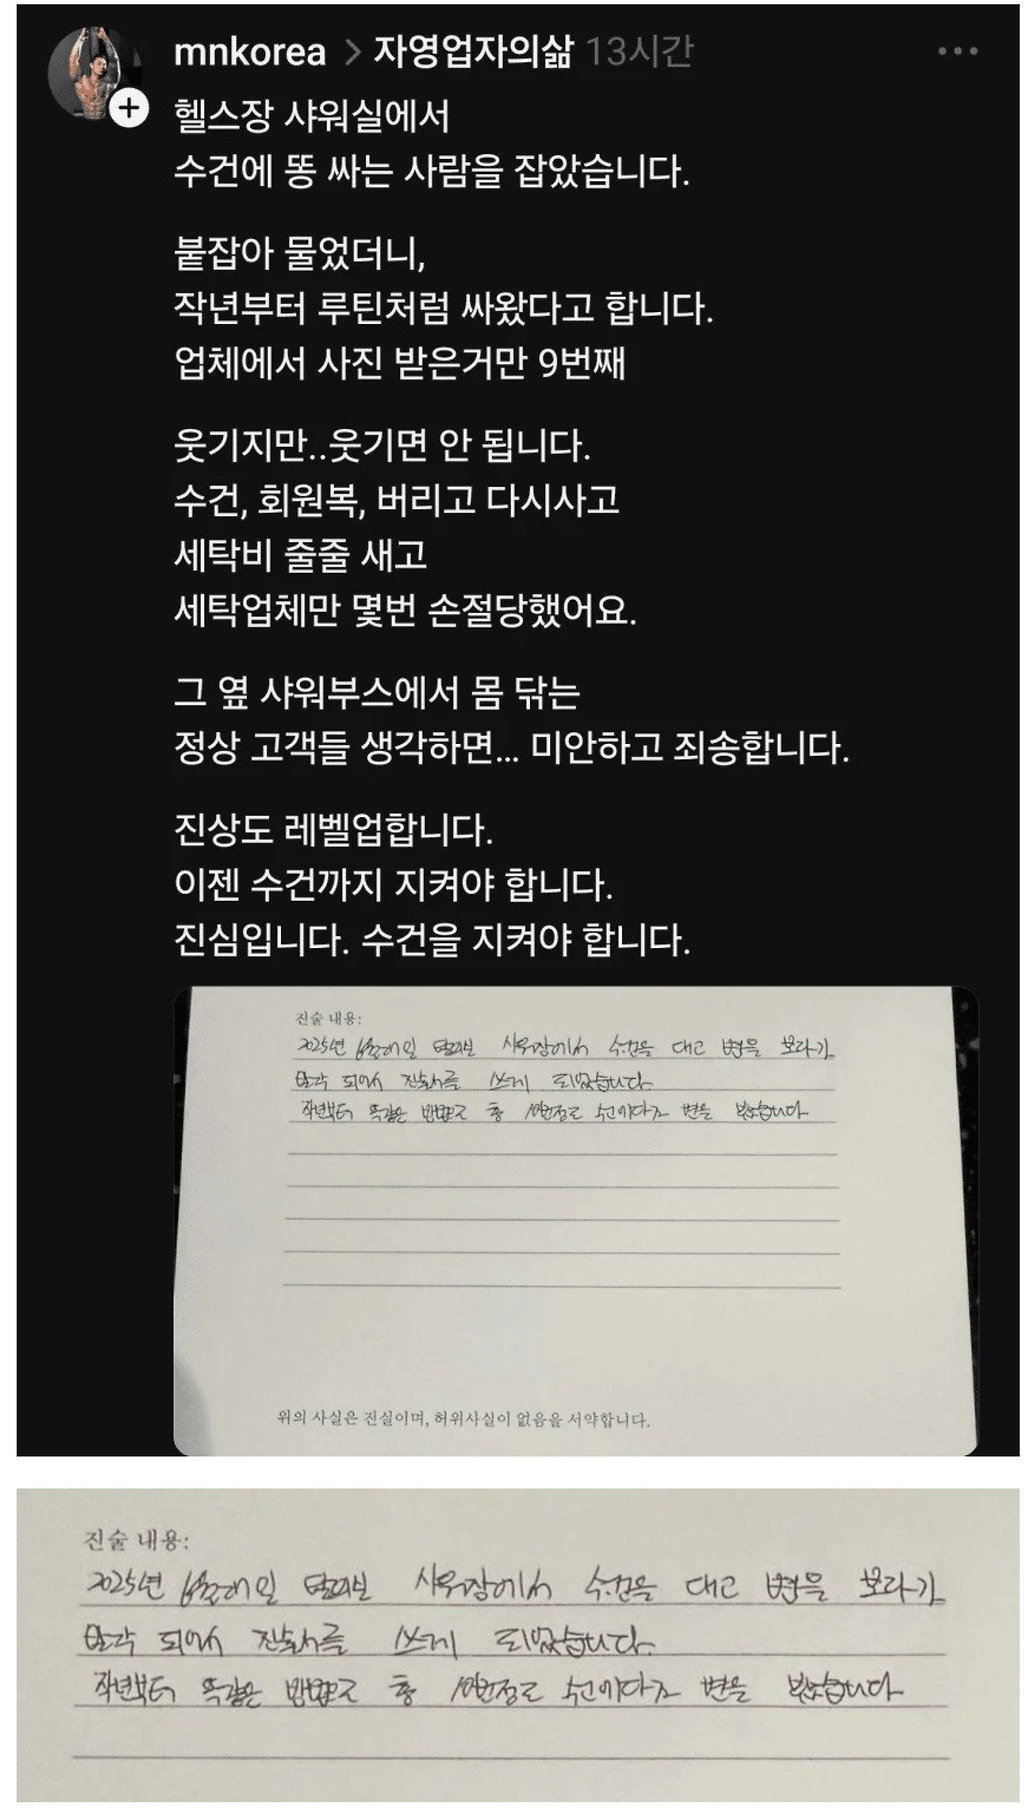 mnkorea > 자영업자의삶 13시간
헬스장 샤워실에서
수건에 똥 싸는 사람을 잡았습니다.
붙잡아 물었더니,
작년부터 루틴처럼 싸왔다고 합니다.
업체에서 사진 받은거만 9번째
웃기지만..웃기면 안 됩니다.
수건, 회원복, 버리고 다시사고
세탁비 줄줄 새고
세탁업체만 몇번 손절당했어요.
그 옆 샤워부스에서 몸 닦는
정상 고객들 생각하면... 미안하고 죄송합니다.
진상도 레벨업합니다.
이젠 수건까지 지켜야 합니다.
진심입니다. 수건을 지켜야 합니다.
진술 내용:
2025년 샤워장에서 수건을 대고 변을 보다가
발각 되어서 진술서를 쓰게 되었습니다.
작년부터 똑같은 방법으로 총 10번정도 수건에다가 변을 봤습니다
위의 사실은 진실이며, 허위사실이 없음을 서약합니다.
진술 내용:
2025년 샤워장에서 수건을 대고 변을 보다가
발각 되어서 진술서를 쓰게 되었습니다.
작년부터 똑같은 방법으로 총 10번정도 수건에다가 변을 봤습니다